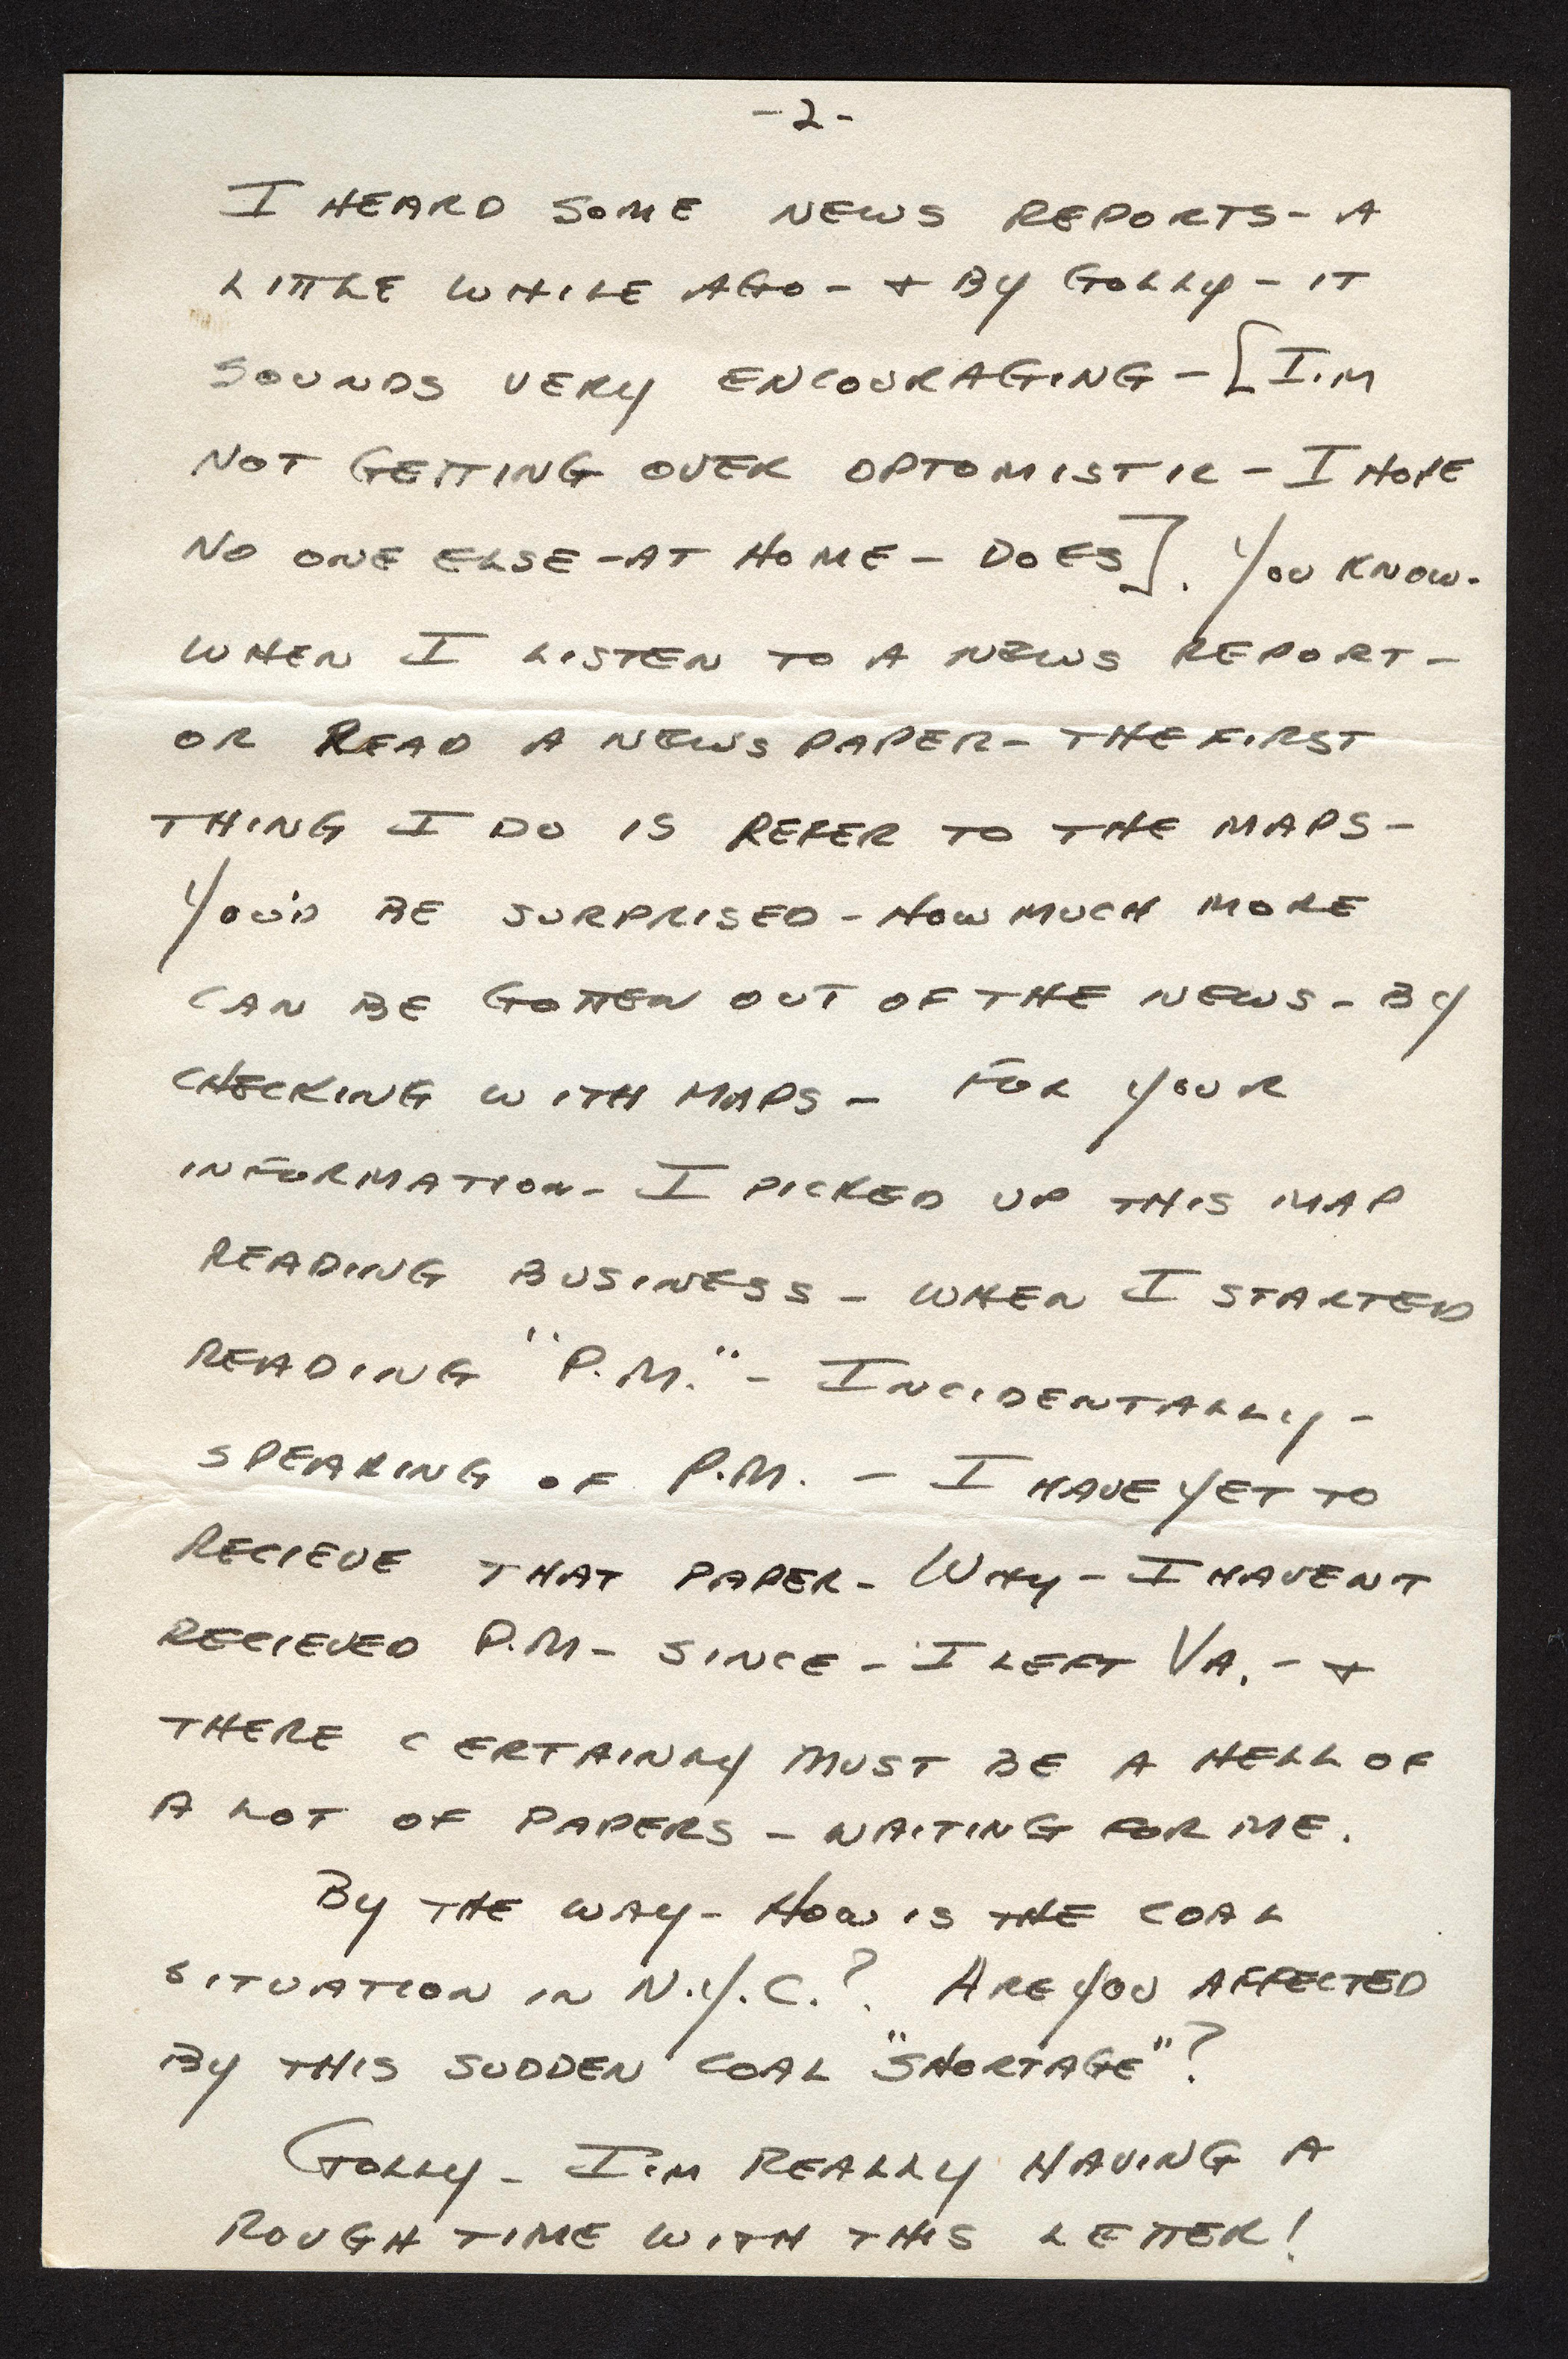 -2-
I HEARD SOME NEWS REPORTS- A
LITTLE WHILE AGO - + BY GOLLY - IT
SOUNDS VERY ENCOURAGING - [I'M
NOT GETTING OVER OPTOMISTIC - I HOPE
NO ONE ELSE - AT HOME - DOES]. YOU KNOW -
WHEN I LISTEN TO A NEWS REPORT -
OR READ A NEWS PAPER - THE FIRST
THING I DO IS REFER TO THE MAPS -
YOU'D BE SURPRISED - HOW MUCH MORE
CAN BE GOTTEN OUT OF THE NEWS - BY
CHECKING WITH MAPS - FOR YOUR
INFORMATION - I PICKED UP THIS MAP
READING BUSINESS - WHEN I STARTED
READING "P.M." - INCIDENTALLY -
SPEAKING OF P.M. - I HAVE YET TO
RECIEVE THAT PAPER - WHY - I HAVENT
RECIEVED P.M - SINCE - I LEFT VA. - +
THERE CERTAINLY MUST BE A HELL OF
A LOT OF PAPERS - WAITING FOR ME.
BY THE WAY - HOW IS THE COAL
SITUATION IN N.Y.C.? ARE YOU AFFECTED
BY THIS SUDDEN COAL "SHORTAGE"?
GOLLY - I'M REALLY HAVING A
ROUGH TIME WITH THIS LETTER!